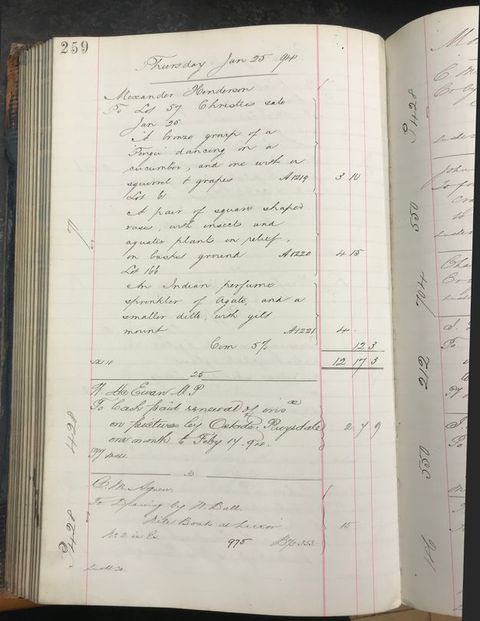 259
Thursday Jan 25 94
Alexander Henderson
To Lot 57 Christies sale
Jan 25
A bronze group of a
"Fengu" dancing on a
cucumber, and one with a
squirrel & grapes A1219 3 10
Lot 6
A pair of square shaped
vases, with insects and
aquatic plants in relief,
on basket ground A1220 4 15
Lot 166
An Indian perfume
sprinkler of Agate, and a
smaller ditto, with gilt
mount A1221 4
Com 5% 12 3
12 17 3
25
W. McEwan M P
To Cash paid renewal of ins
on pictures by Ostade, Ruysdael
one month to Feby 17. 94. 2 7 9
428
C. M. Agnew
To Drawing by W. Ball
Nile Boats at Luxor 15
No 2 in Ex 975
P 428
P 428
550
212
550